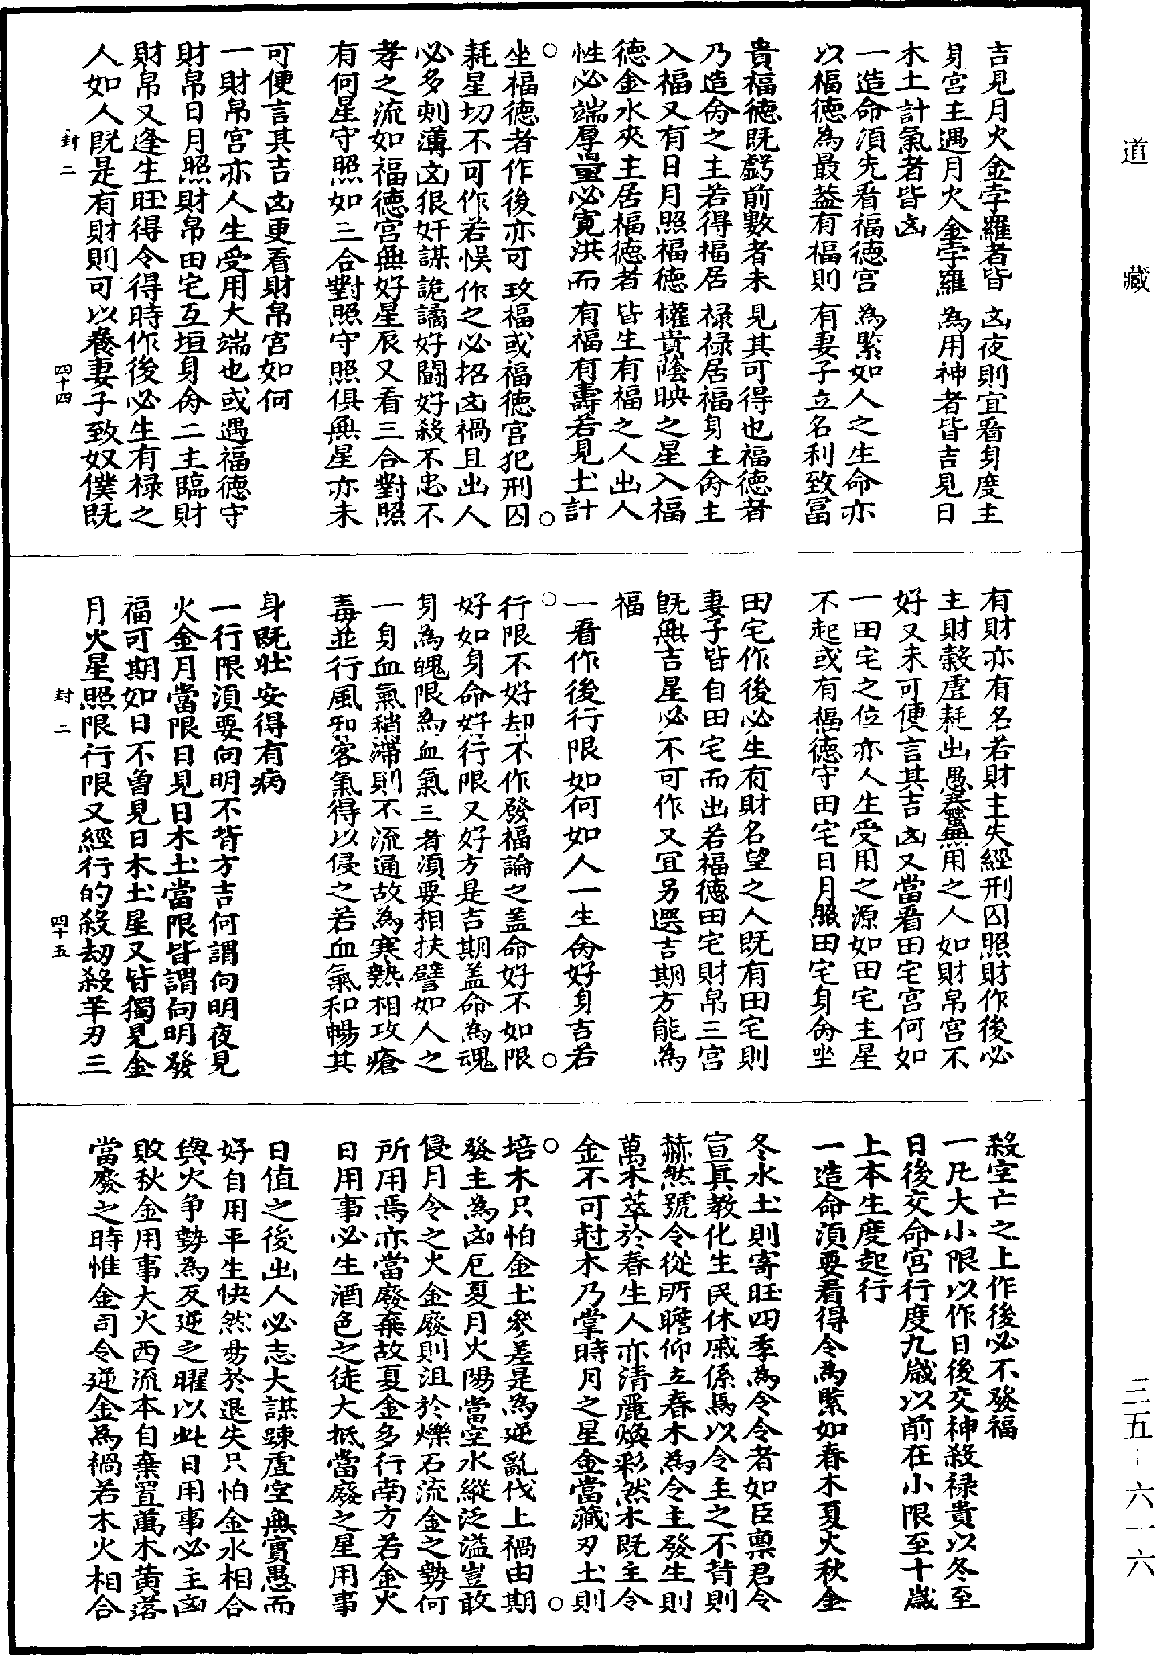 道藏
吉見月火金孛羅者皆凶夜則宜看身度主
身宮主遇月火金孛羅為用神者皆吉見日
木土計氣者皆凶
一造命須先看福德宮為緊如人之生命亦
以福德為最益有福則有妻子立名利致富
貴福德既虧前數者未見其可得也福德者
乃造命之主若得福居祿祿居福身主命主
入福又有日月照福德權貴蔭映之星入福
德金水夾主居福德者皆生有福之人出人
性必端厚量必寬洪而有福有壽若見土計
坐福德者作後亦可攻福或福德官犯刑囚
耗星切不可作若悞作之必招凶禍且出人
必多刺薄凶狠奸謀詭譎好鬪好殺不忠不
孝之流如福德宮無好星辰又看三合對照
有何星守照如三合對照守照俱無星亦未
可便言其吉凶更看財帛宮如何
一財帛宮亦人生受用大端也或遇福德守
財帛日月照財帛田宅互垣身命二主臨財
財帛又逢生旺得令得時作後必生有祿之
人如人既是有財則可以養妻子致奴僕既
封二 四十四
有財亦有名若財主失經刑囚照財作後必
主財穀虛耗出愚蠢無用之人如財帛宮不
好又未可便言其吉凶又當看田宅宮何如
一田宅之位亦人生受用之源如田宅主星
不起或有福德守田宅日月照田宅身命坐
田宅作後必生有財名望之人既有田宅則
妻子皆自田宅而出若福德田宅財帛三宮
既無吉星必不可作又宜另選吉期方能為
福
一看作後行限如何如人一生命好身吉若
行限不好却不作發福論之蓋命好不如限
好如身命好行限又好方是吉期蓋命為魂
身為魄限為血氣三者須要相扶譬如人之
一身血氣稍滯則不流通故為寒熱相攻瘡
毒並行風邪客氣得以侵之若血氣和暢其
身既壯安得有病
一行限須要向明不背方吉何謂向明夜見
火金月當限日見日木土當限皆謂向明發
福可期如日不曽見日木土星又皆獨見金
月火星照限行限又經行的殺劫殺羊刃三
封二 四十五
殺空亡之上作後必不發福
一凡大小限以作日後交神殺祿貴以冬至
日後交命宮行度九歲以前在小限至十歲
上本生度起行
一造命須要看得令為緊如春木夏火秋金
冬水土則寄旺四季為令令者如臣稟君令
宣其教化生民休戚係焉以令主之不背則
赫然號令從所瞻仰立春木為令主發生則
萬木萃於春生人亦清麗煥彩然木既主令
金不可尅木乃掌時月之星金當藏刃土則
培木只怕金土參差是為逆亂伐上禍由期
發主為凶厄夏月火陽當空水縱泛溢豈敢
侵月令之火金廢則沮於爍石流金之勢何
所用焉亦當廢棄故夏金多行南方若金火
日用事必生酒色之徒大抵當廢之星用事
日值之後出人必志大謀踈虛空無實愚而
好自用平生快然勇於退失只怕金水相合
與火爭勢為反逆之曜以此日用事必主凶
敗秋金用事大火西流本自棄置萬木黃落
當廢之時惟金司令逆金為禍若木火相合
三五-六一六